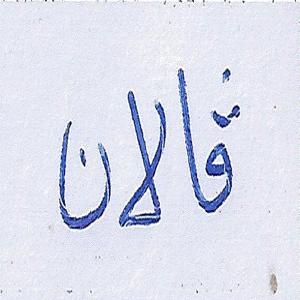 ڨالان